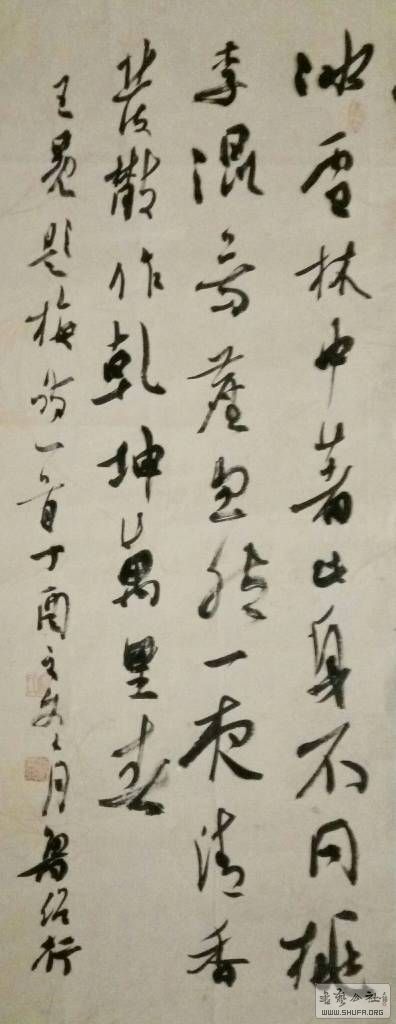 冰雪林中著此身不同桃
李混芳塵忽然一夜清香
發散作乾坤萬里春
王冕題梅詩一首丁酉之月魯紹行
书艺公社
WWW.SHUFA.ORG